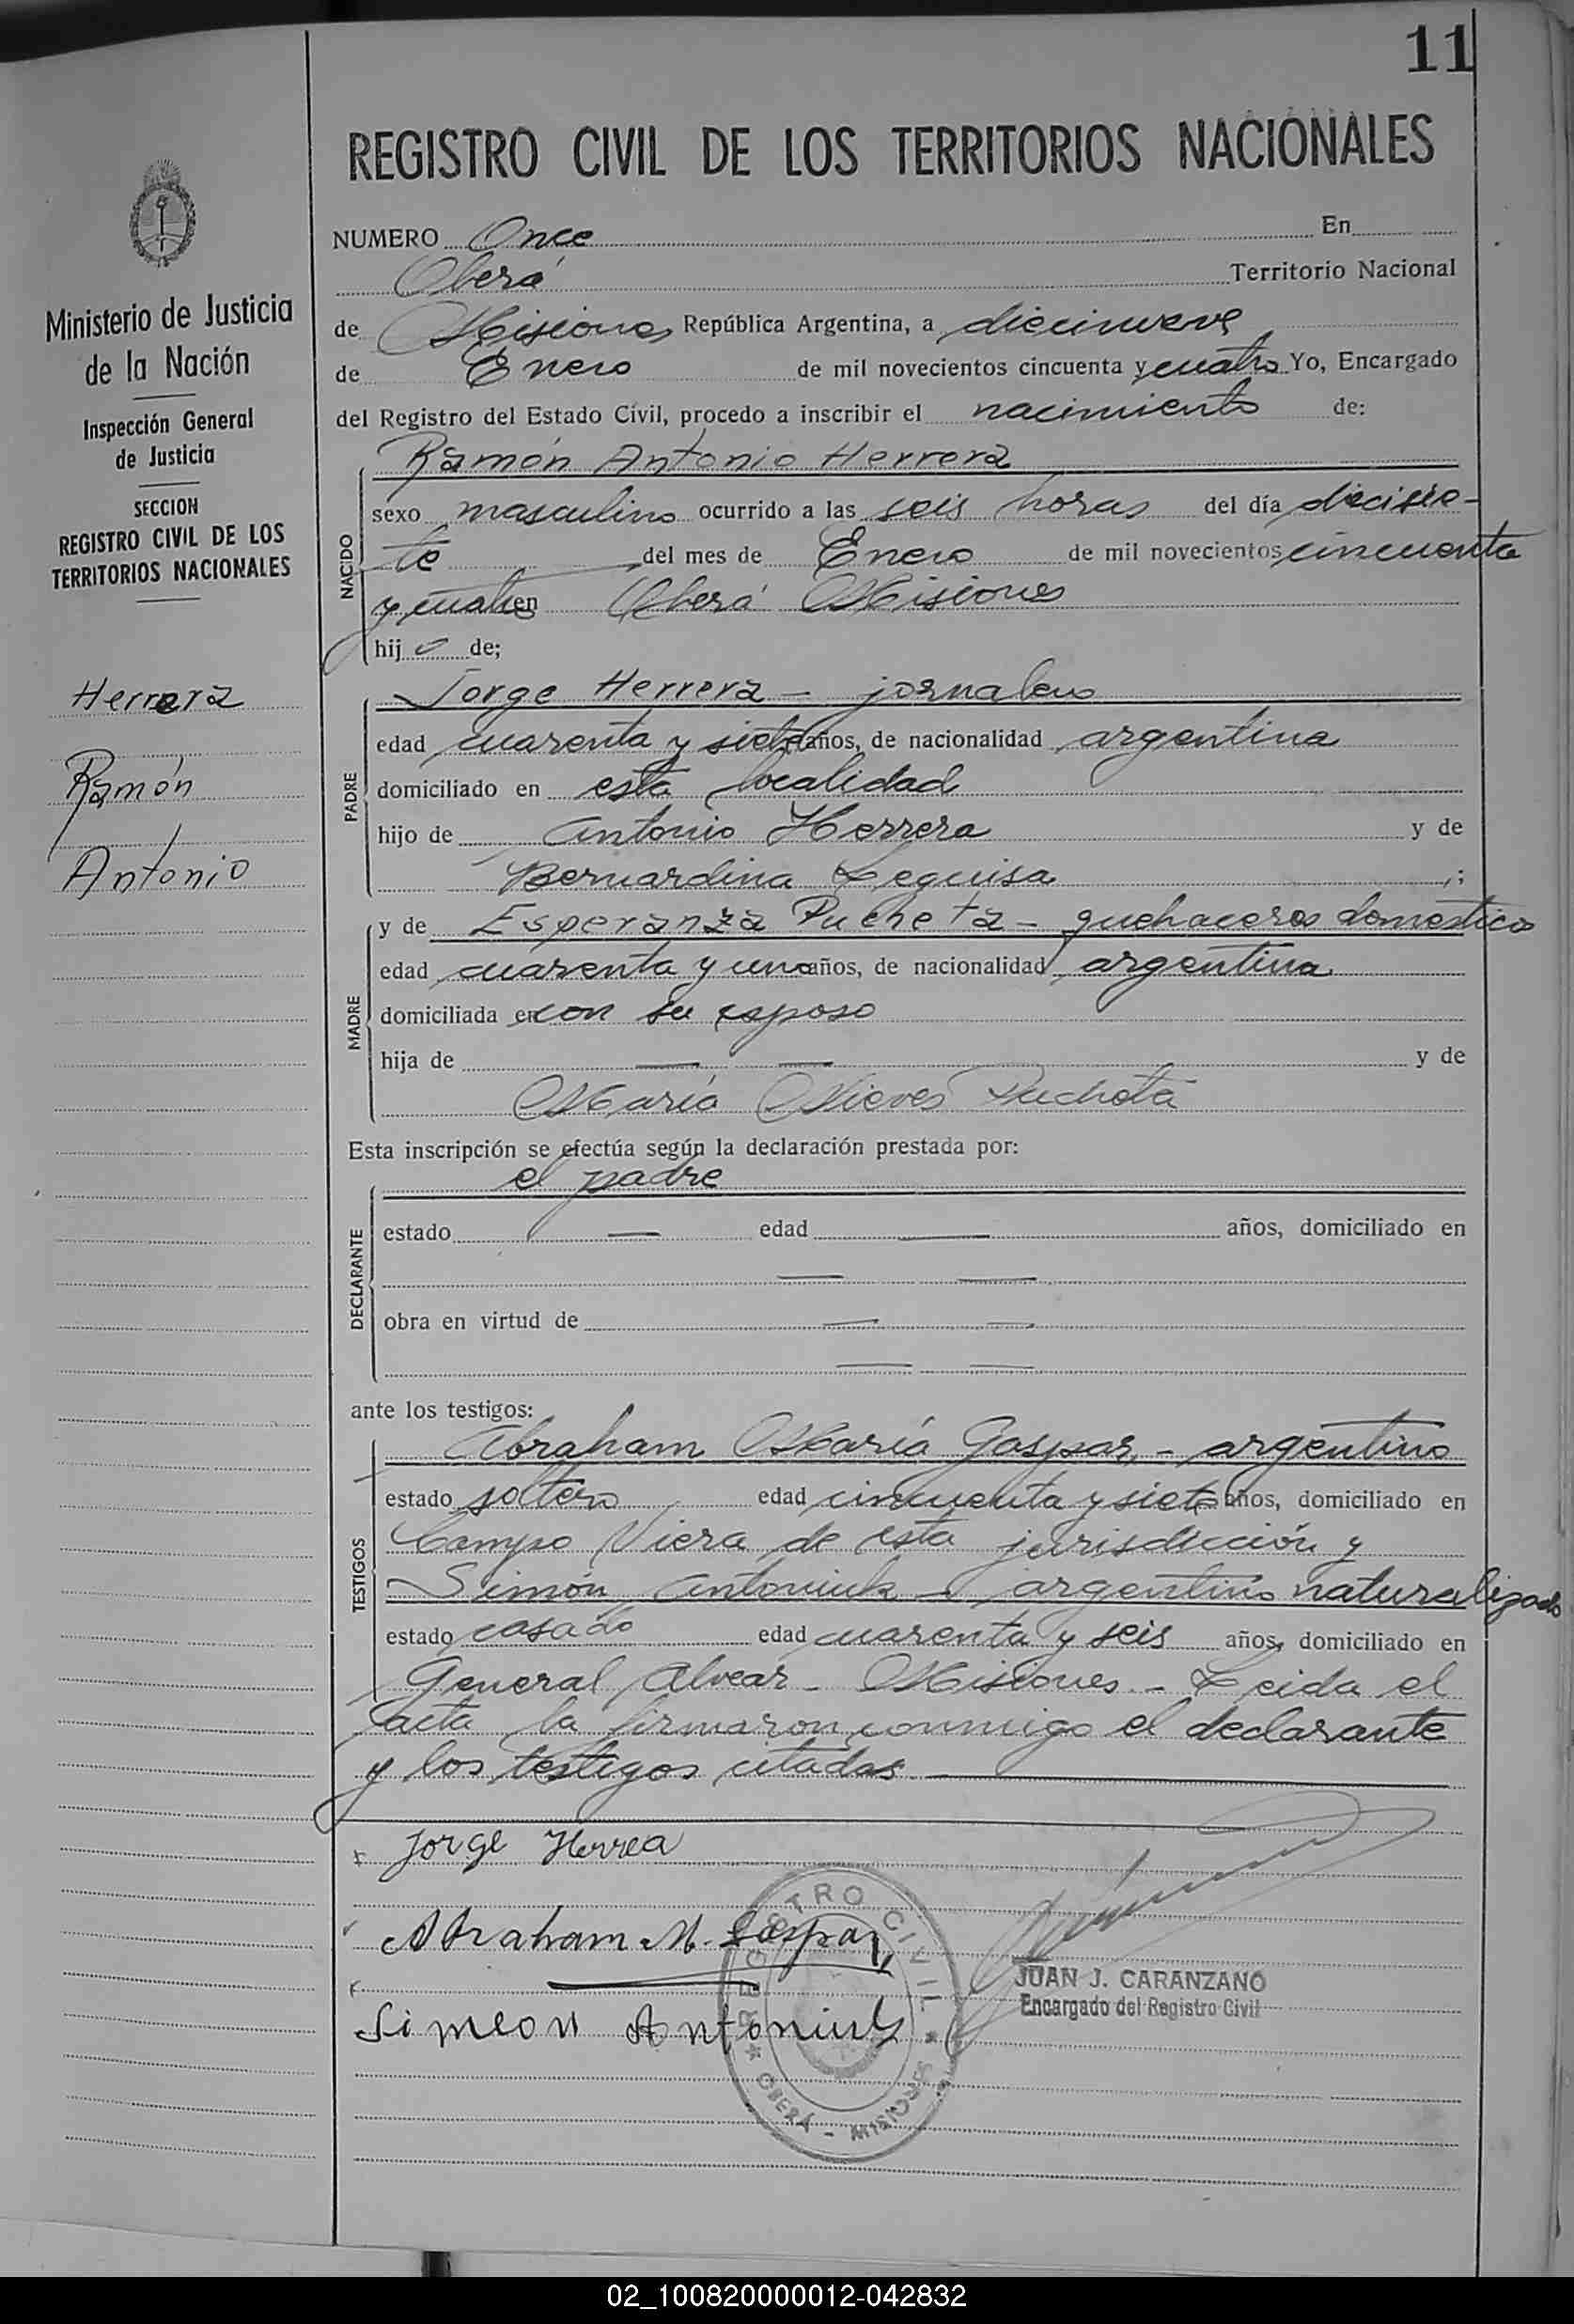 11
REGISTRO CIVIL DE LOS TERRITORIOS NACIONALES
Ministerio de Justicia
de la Nación
Inspección General
de Justicia
SECCION
REGISTRO CIVIL DE LOS
TERRITORIOS NACIONALES
Herrera
Ramón
Antonio
NUMERO Once En
Oberá Territorio Nacional
de Misiones República Argentina, a diecinueve
de Enero de mil novecientos cincuenta y cuatro Yo, Encargado
del Registro del Estado Civil, procedo a inscribir el nacimiento de:
NACIDO
Ramón Antonio Herrera
sexo masculino ocurrido a las seis horas del día diecisie-
te del mes de Enero de mil novecientos cincuenta
y cuatro en Oberá Misiones
hijo de;
PADRE
Jorge Herrera - jornalero
edad cuarenta y siete años, de nacionalidad argentina
domiciliado en esta localidad
hijo de Antonio Herrera y de
Bernardina Leguisa ;
MADRE
y de Esperanza Pucheta - quehaceres domesticos
edad cuarenta y uno años, de nacionalidad argentina
domiciliada en con su esposo
hija de — — y de
María Nieves Pucheta
Esta inscripción se efectúa según la declaración prestada por:
DECLARANTE
el padre
estado — edad — años, domiciliado en
— —
obra en virtud de — —
— —
ante los testigos:
TESTIGOS
Abraham María Gaspar, - argentino
estado soltero edad cincuenta y siete años, domiciliado en
Campo Viera de esta jurisdicción y
Simón Antoniuk - argentino naturalizado
estado casado edad cuarenta y seis años, domiciliado en
General Alvear - Misiones - Leida el
acta la firmaron conmigo el declarante
y los testigos citados
Jorge Herrea
Abraham M. Gaspar,
Simeon Antoniuk
REGISTRO CIVIL
OBERÁ - MISIONES
JUAN J. CARANZANO
Encargado del Registro Civil
02_100820000012-042832